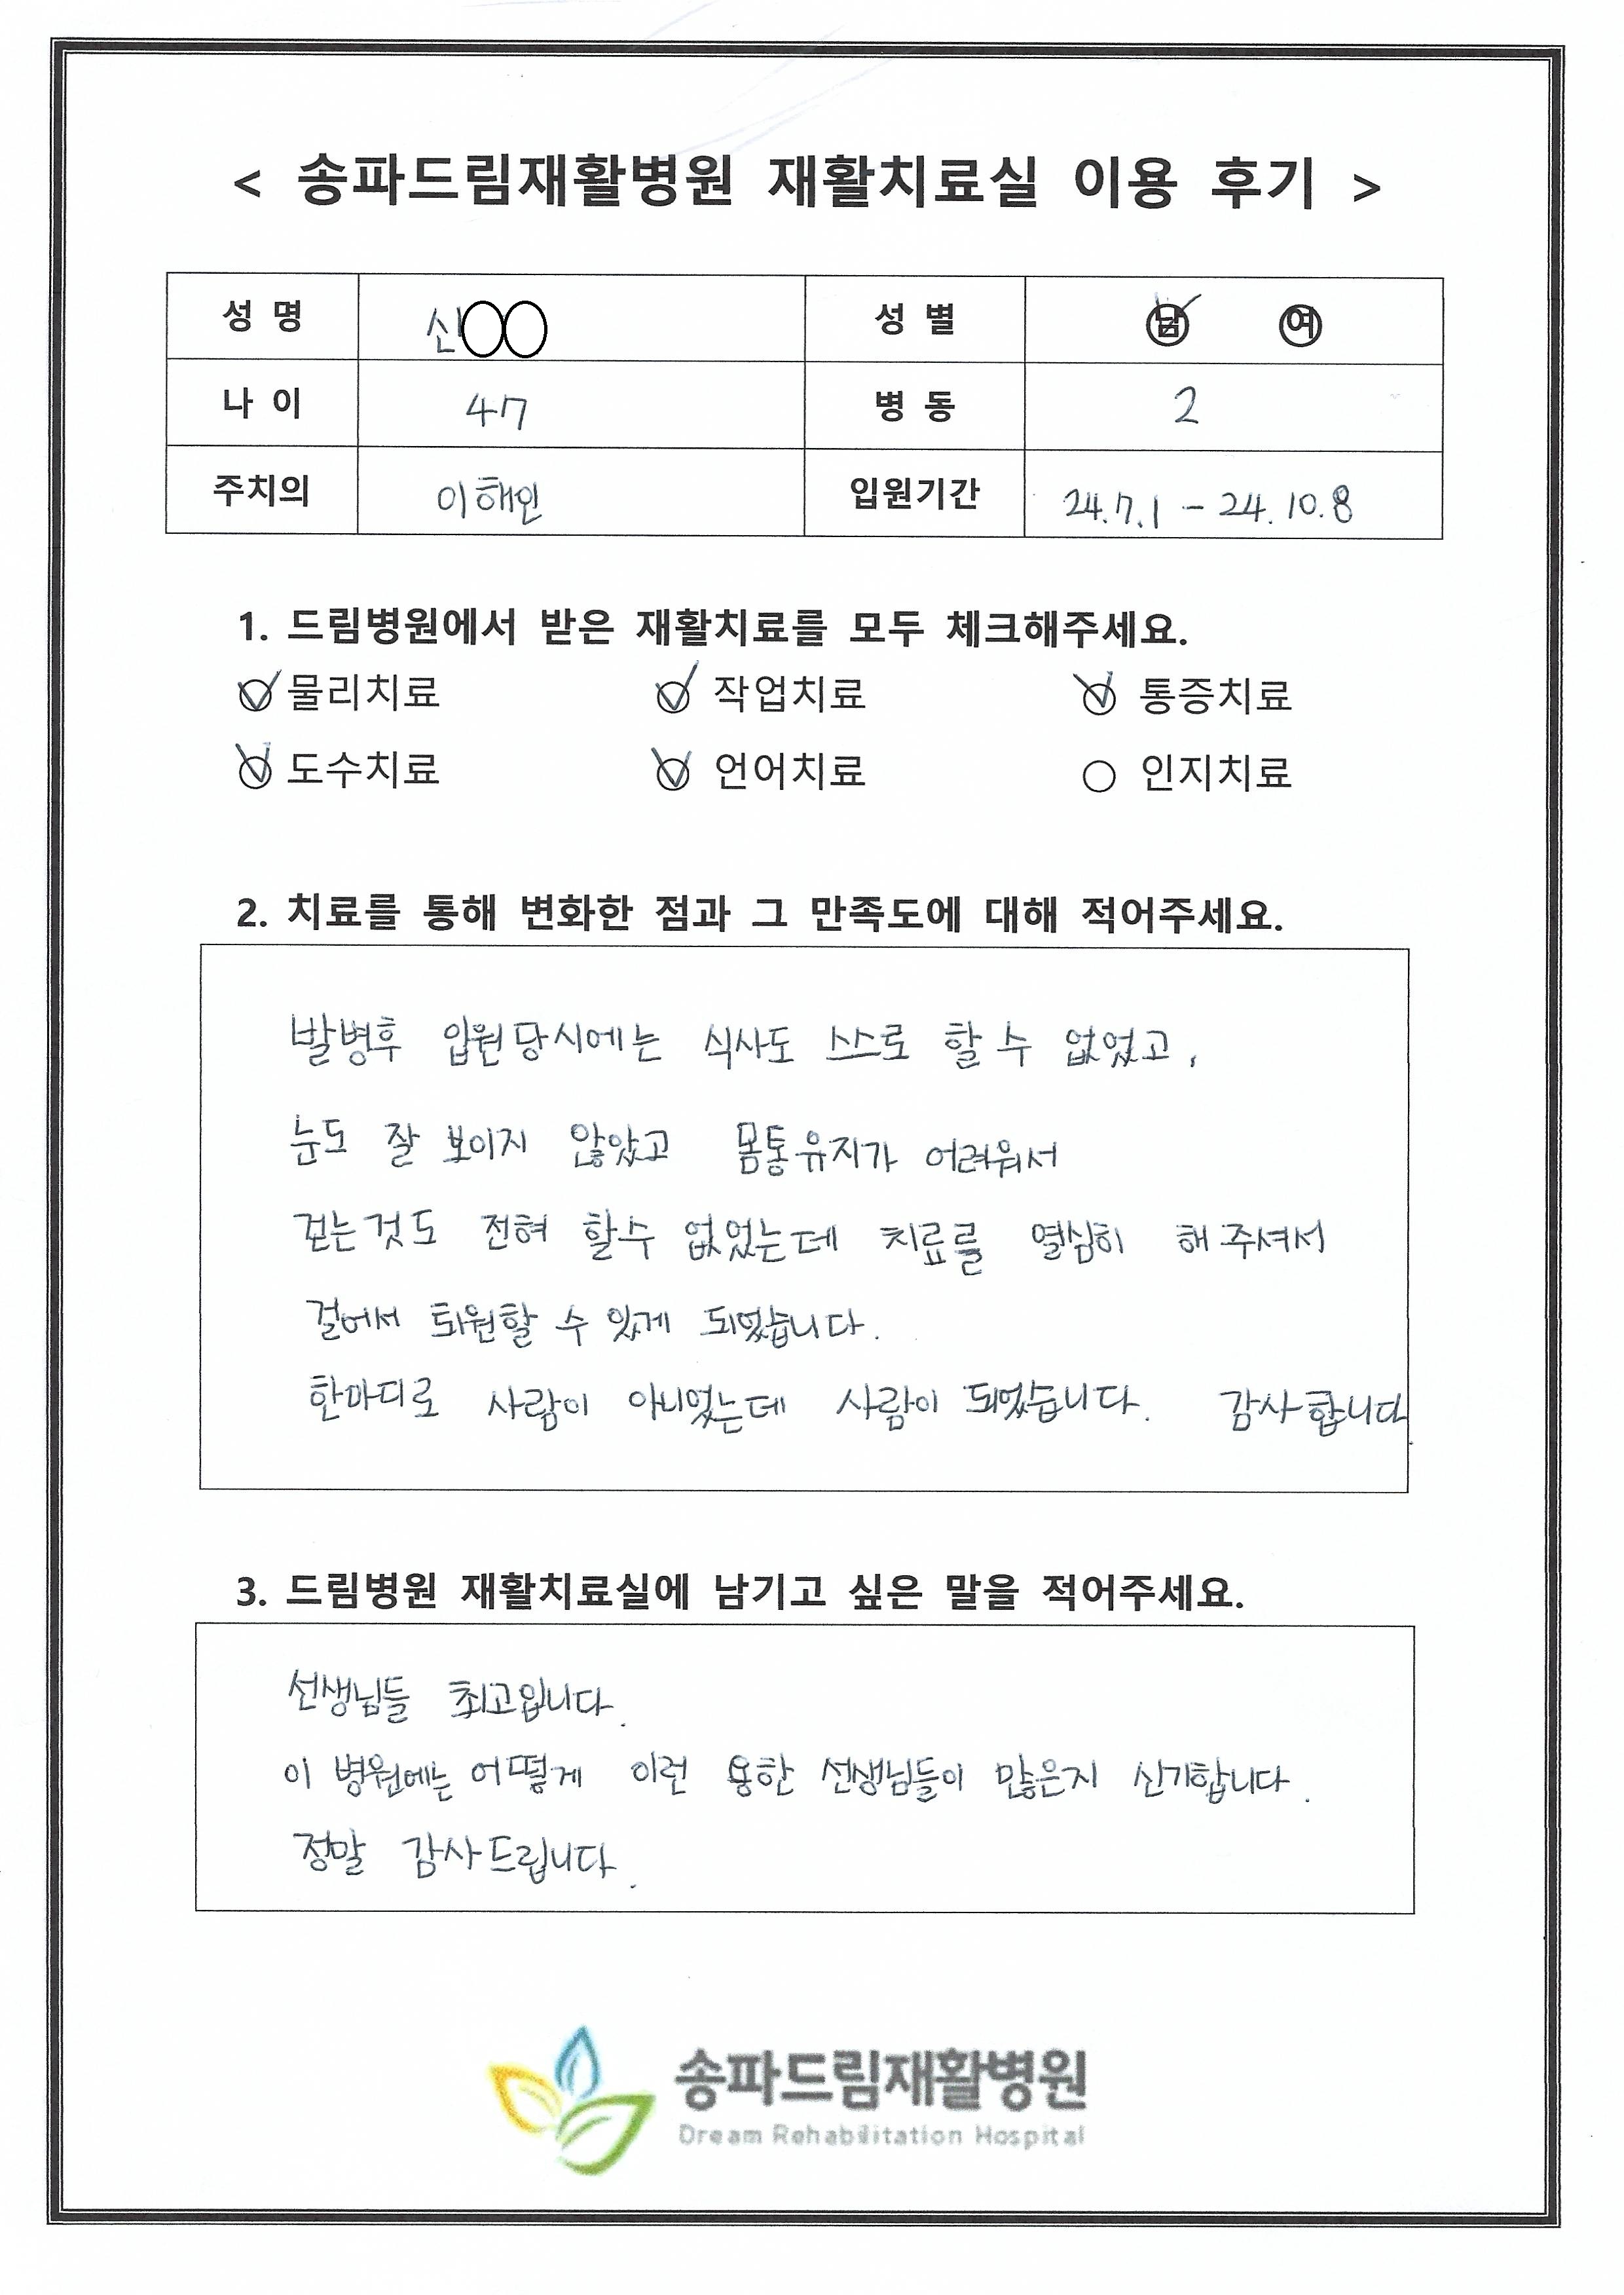 < 송파드림재활병원 재활치료실 이용 후기 >
성 명 신○○ 성 별 남 여
나 이 47 병 동 2
주치의 이해인 입원기간 24.7.1 - 24.10.8
1. 드림병원에서 받은 재활치료를 모두 체크해주세요.
물리치료 작업치료 통증치료
도수치료 언어치료 인지치료
2. 치료를 통해 변화한 점과 그 만족도에 대해 적어주세요.
발병후 입원당시에는 식사도 스스로 할 수 없었고,
눈도 잘 보이지 않았고 몸통유지가 어려워서
걷는것도 전혀 할수 없었는데 치료를 열심히 해주셔서
걸어서 퇴원할 수 있게 되었습니다.
한마디로 사람이 아니었는데 사람이 되었습니다. 감사합니다.
3. 드림병원 재활치료실에 남기고 싶은 말을 적어주세요.
선생님들 최고입니다.
이 병원에는 어떻게 이런 용한 선생님들이 많은지 신기합니다.
정말 감사드립니다.
송파드림재활병원
Dream Rehabilitation Hospital